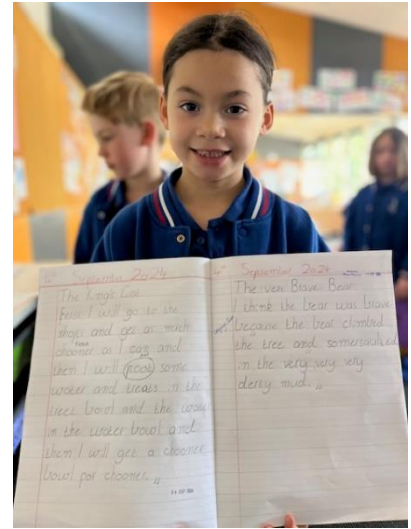 September 2024
The King's
First I will go to the
shops and get as much
chooner as I can and
then I will poot some
water and treats in the
treet bowl and the water
in the water bowl and
then I will get a chooner
bowl for chooner.
4th September 2024
The Very Brave Bear
I think the bear was brave
because the bear climbed
the tree and somersaulted
in the very very very
derty mud.